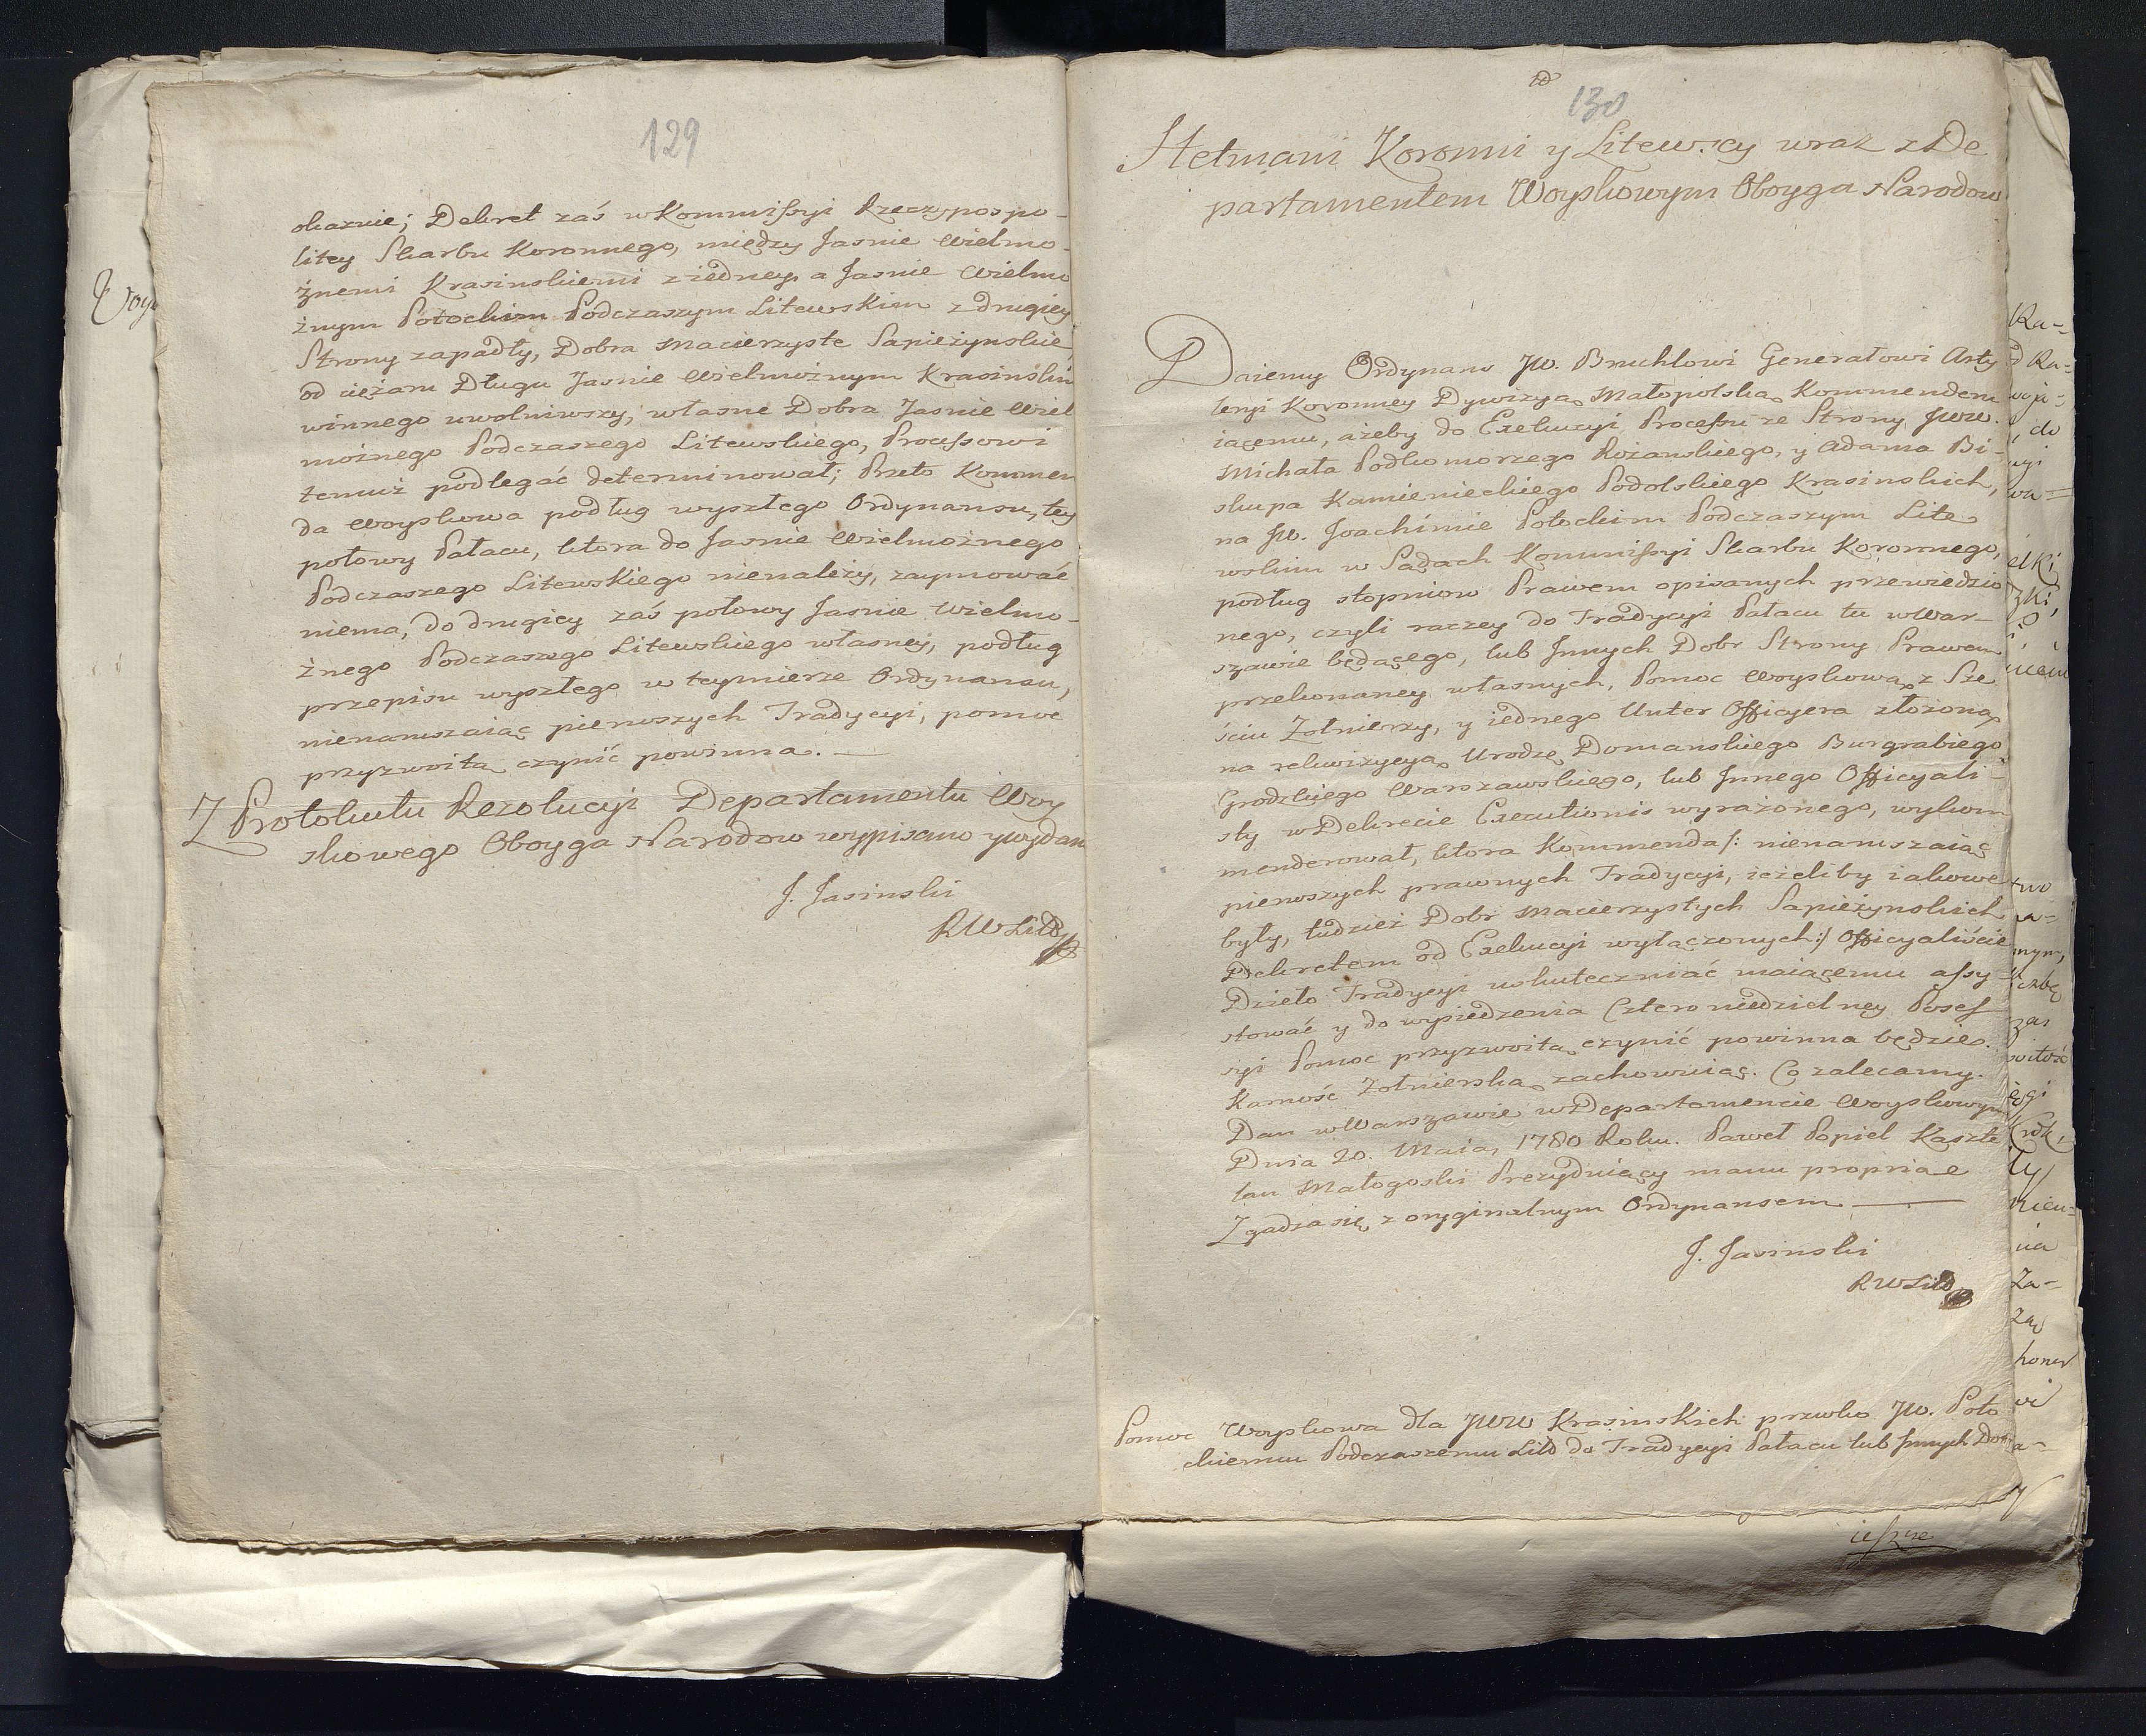 129
okaznie; Dekret zaś w Kommissyi Rzeczypospo-
litey Skarbu Koronnego, między Jasnie Wielmo-
żnemi Krasinskiemi z iedney a Jasnie Wielmo
żnym Potockim Podczaszym Litewskim z drugiey
Strony zapadły, Dobra Macierzyste Sapieżynskie,
od ciężaru Długu Jasnie Wielmożnym Krasińskim
winnego uwolniwszy, własne Dobra Jasnie Wiel
możnego Podczaszego Litewskiego, Processowi
temuż podlegać determinował; Przeto Kommen
da Woyskowa podług wyszłego Ordynansu, tey
połowy Pałacu, ktora do Jasnie Wielmożnego
Podczaszego Litewskiego nienależy, zaymować
niema, do drugiey zaś połowy Jasnie Wielmo-
żnego Podczaszego Litewskiego własney, podług
przepisu wyszłego w teymierze Ordynansu,
nienaruszaiąc pierwszych Tradycyi, pomoc
przyzwoitą czynić powinna. —
Z Protokułu Rezolucyi Departamentu Woy
skowego Oboyga Narodow wypisano y wydano
J. Jasinski
RWLitt
130
Hetmani Koronni y Litewscy wraz z De
partamentem Woyskowym Oboyga Narodow
Daiemy Ordynans JW. Bruchlowi Generałowi Arty
leryi Koronney Dywizyą Małopolską Kommenderu
iącemu, ażeby do Exekucyi Processu ze Strony JWW.
Michała Podkomorzego Rożanskiego, y Adama Bi-
skupa Kamienieckiego Podolskiego Krasinskich,
na JW. Joachimie Potockim Podczaszym Lite
wskim w Sądach Kommissyi Skarbu Koronnego,
podług stopniow Prawem opisanych przewiedzio
nego, czyli raczey do Tradycyi Pałacu tu w War-
szawie będącego, lub Innych Dobr Strony Prawem
przekonaney własnych, Pomoc Woyskową z Sze
ściu Zołnierzy, y iednego Unter Officyera złożoną
na rekwizycyą Urodze Domanskiego Burgrabiego
Grodzkiego Warszawskiego, lub Innego Officyali-
sty w Dekrecie Executionis wyrażonego, wykom
menderował, ktora Kommenda /: nienaruszaiąc
pierwszych prawnych Tradycyi, ieżeliby iakowe
były, tudzież Dobr Macierzystych Sapieżynskich
Dekretem od Exekucyi wyłączonych :/ Officyaliście
Dzieło Tradycyi uskuteczniać maiącemu assy-
stować y do wysiedzenia Czteroniedzielney Posses
syi Pomoc przyzwoitą czynić powinna będzie.
Karność Zołnierską zachowuiąc. Co zalecamy.
Dan w Warszawie w Departamencie Woyskowym
Dnia 20. Maia, 1780 Roku. Paweł Popiel Kaszte
lan Małogoski Prezyduiący manu propriae
Zgadza się z oryginalnym Ordynansem —
J. Jasinski
RWLitt
Pomoc Woyskowa dla JWW Krasinskich przwko JW. Poto
ckiemu Podczaszemu Litt do Tradycyi Pałacu lub Innych Dobr